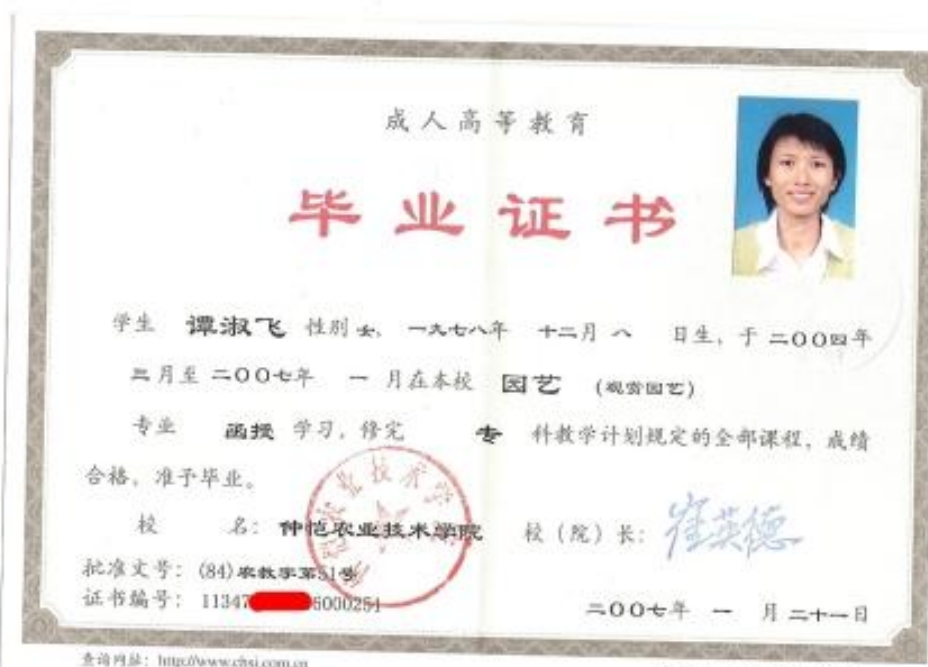 成人高等教育
毕业证书
学生 谭淑飞 性别 女, 一九七八年 十二月 八 日生, 于 二〇〇四年
三月至 二〇〇七年 一 月在本校 园艺 (观赏园艺)
专业 函授 学习, 修完 专 科教学计划规定的全部课程, 成绩
合格, 准予毕业。
校 名: 仲恺农业技术学院 校 (院) 长: 崔英德
批准文号: (84)农教字第51号
证书编号: 11347 5000251
二〇〇七年 一 月 二十一日
查询网址: http://www.chsi.com.cn